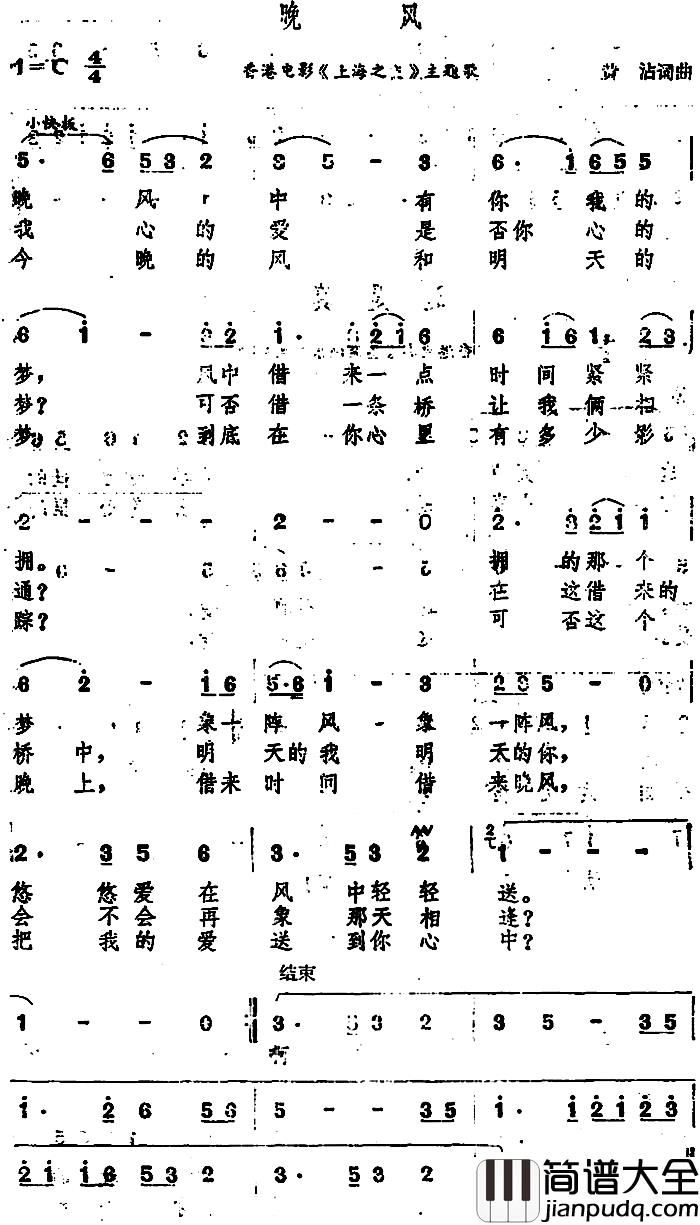 晚 风
1=C 4/4 香港电影《上海之 》主题歌 沾词曲
小快板
5· 6 5 3 2 3 5 - 3 6· 1 6 5 5
晚 风 中 有 你 我 的
我 心 的 爱 是 否 你 心 的
今 晚 的 风 和 明 天 的
6 1 - 2 1· 2 1 6 6 1 6 1· 2 3
梦， 风 中 借 来 一 点 时 间 紧 紧
梦？ 可 否 借 一 条 桥 让 我 俩 相
梦 到 底 在 你 心 里 有 多 少 影
2 - - - 2 - - 0 2· 3 2 1 1
拥。 拥 的 那 个
通？ 在 这 借 来 的
踪？ 可 否 这 个
6 2 - 1 6 5· 6 1 - 3 2 3 5 - 0
梦 象 一 阵 风 象 一 阵 风，
桥 中， 明 天 的 我 明 天 的 你，
晚 上， 借 来 时 间 借 来 晚 风，
2· 3 5 6 3· 5 3 2 1 - - -
悠 悠 爱 在 风 中 轻 轻 送。
会 不 会 再 象 那 天 相 逢？
把 我 的 爱 送 到 你 心 中？
结束
1 - - 0 3· 5 3 2 3 5 - 3 5
啊
1· 2 6 5 6 5 - - 3 5 1· 1 2 1 2 3
2 1 1 6 5 3 2 3· 5 3 2 1
简谱大全
jianpudq.com